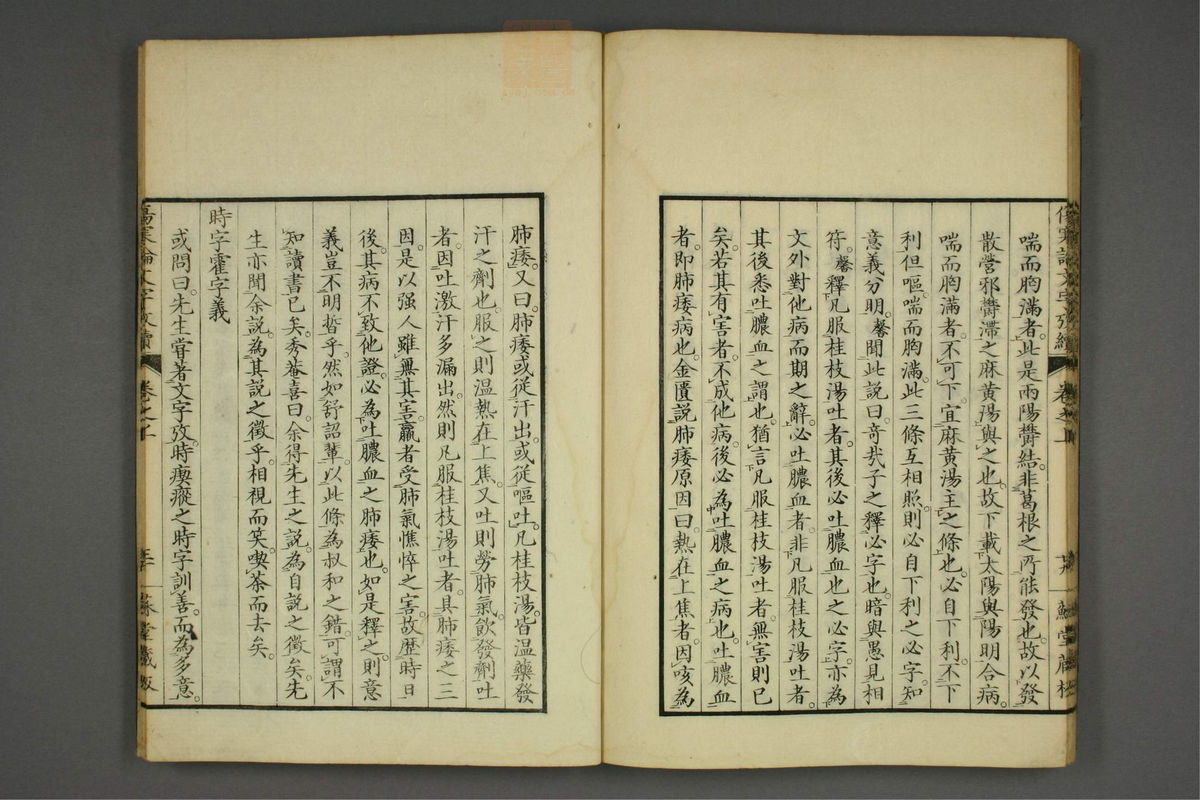 喘而胸滿者。此是兩陽欝結。非葛根之所能發也。故以發
散營邪欝滯之麻黃湯與之也。故下載太陽與陽明合病。
喘而胸滿者。不可下宜麻黃湯主之條也。必自下利。不下
利但嘔。喘而胸滿。此三條互相照。則必自下利之必字。知
意義分明。馨聞此說曰。奇哉子之釋必字也。暗與愚見相
符。馨釋凡服桂枝湯吐者。其後必吐膿血也之必字。亦為
文外對他病而期之辭。必吐膿血者。非凡服桂枝湯吐者。
其後悉吐膿血之謂也。猶言凡服桂枝湯吐者。無害則已
矣。若其有害者。不成他病。後必為吐膿血之病也。吐膿血
者。即肺痿病也。金匱說肺痿原因曰。熱在上焦者。因咳為
肺痿。又曰。肺痿或從汗出。或從嘔吐。凡桂枝湯。皆溫藥發
汗之劑也。服之則溫熱在上焦。又吐則勞肺氣。飲發劑吐
者。因吐激汗多漏出。然則凡服桂枝湯吐者。具肺痿之三
因。是以强人雖無其害。羸者受肺氣憔悴之害。故歷時日
後。其病不致他證。必為吐膿血之肺痿也。如是釋之。則意
義豈不明晳乎。然如舒詔輩。以此條為叔和之錯。可謂不
知讀書已矣。秀菴喜曰。余得先生之說。為自說之徵矣。先
生亦聞余說。為其說之徵乎。相視而笑。喫茶而去矣。
時字霍字義
或問曰。先生甞著文字攷。時瘈瘲之時字訓善。而為多意。